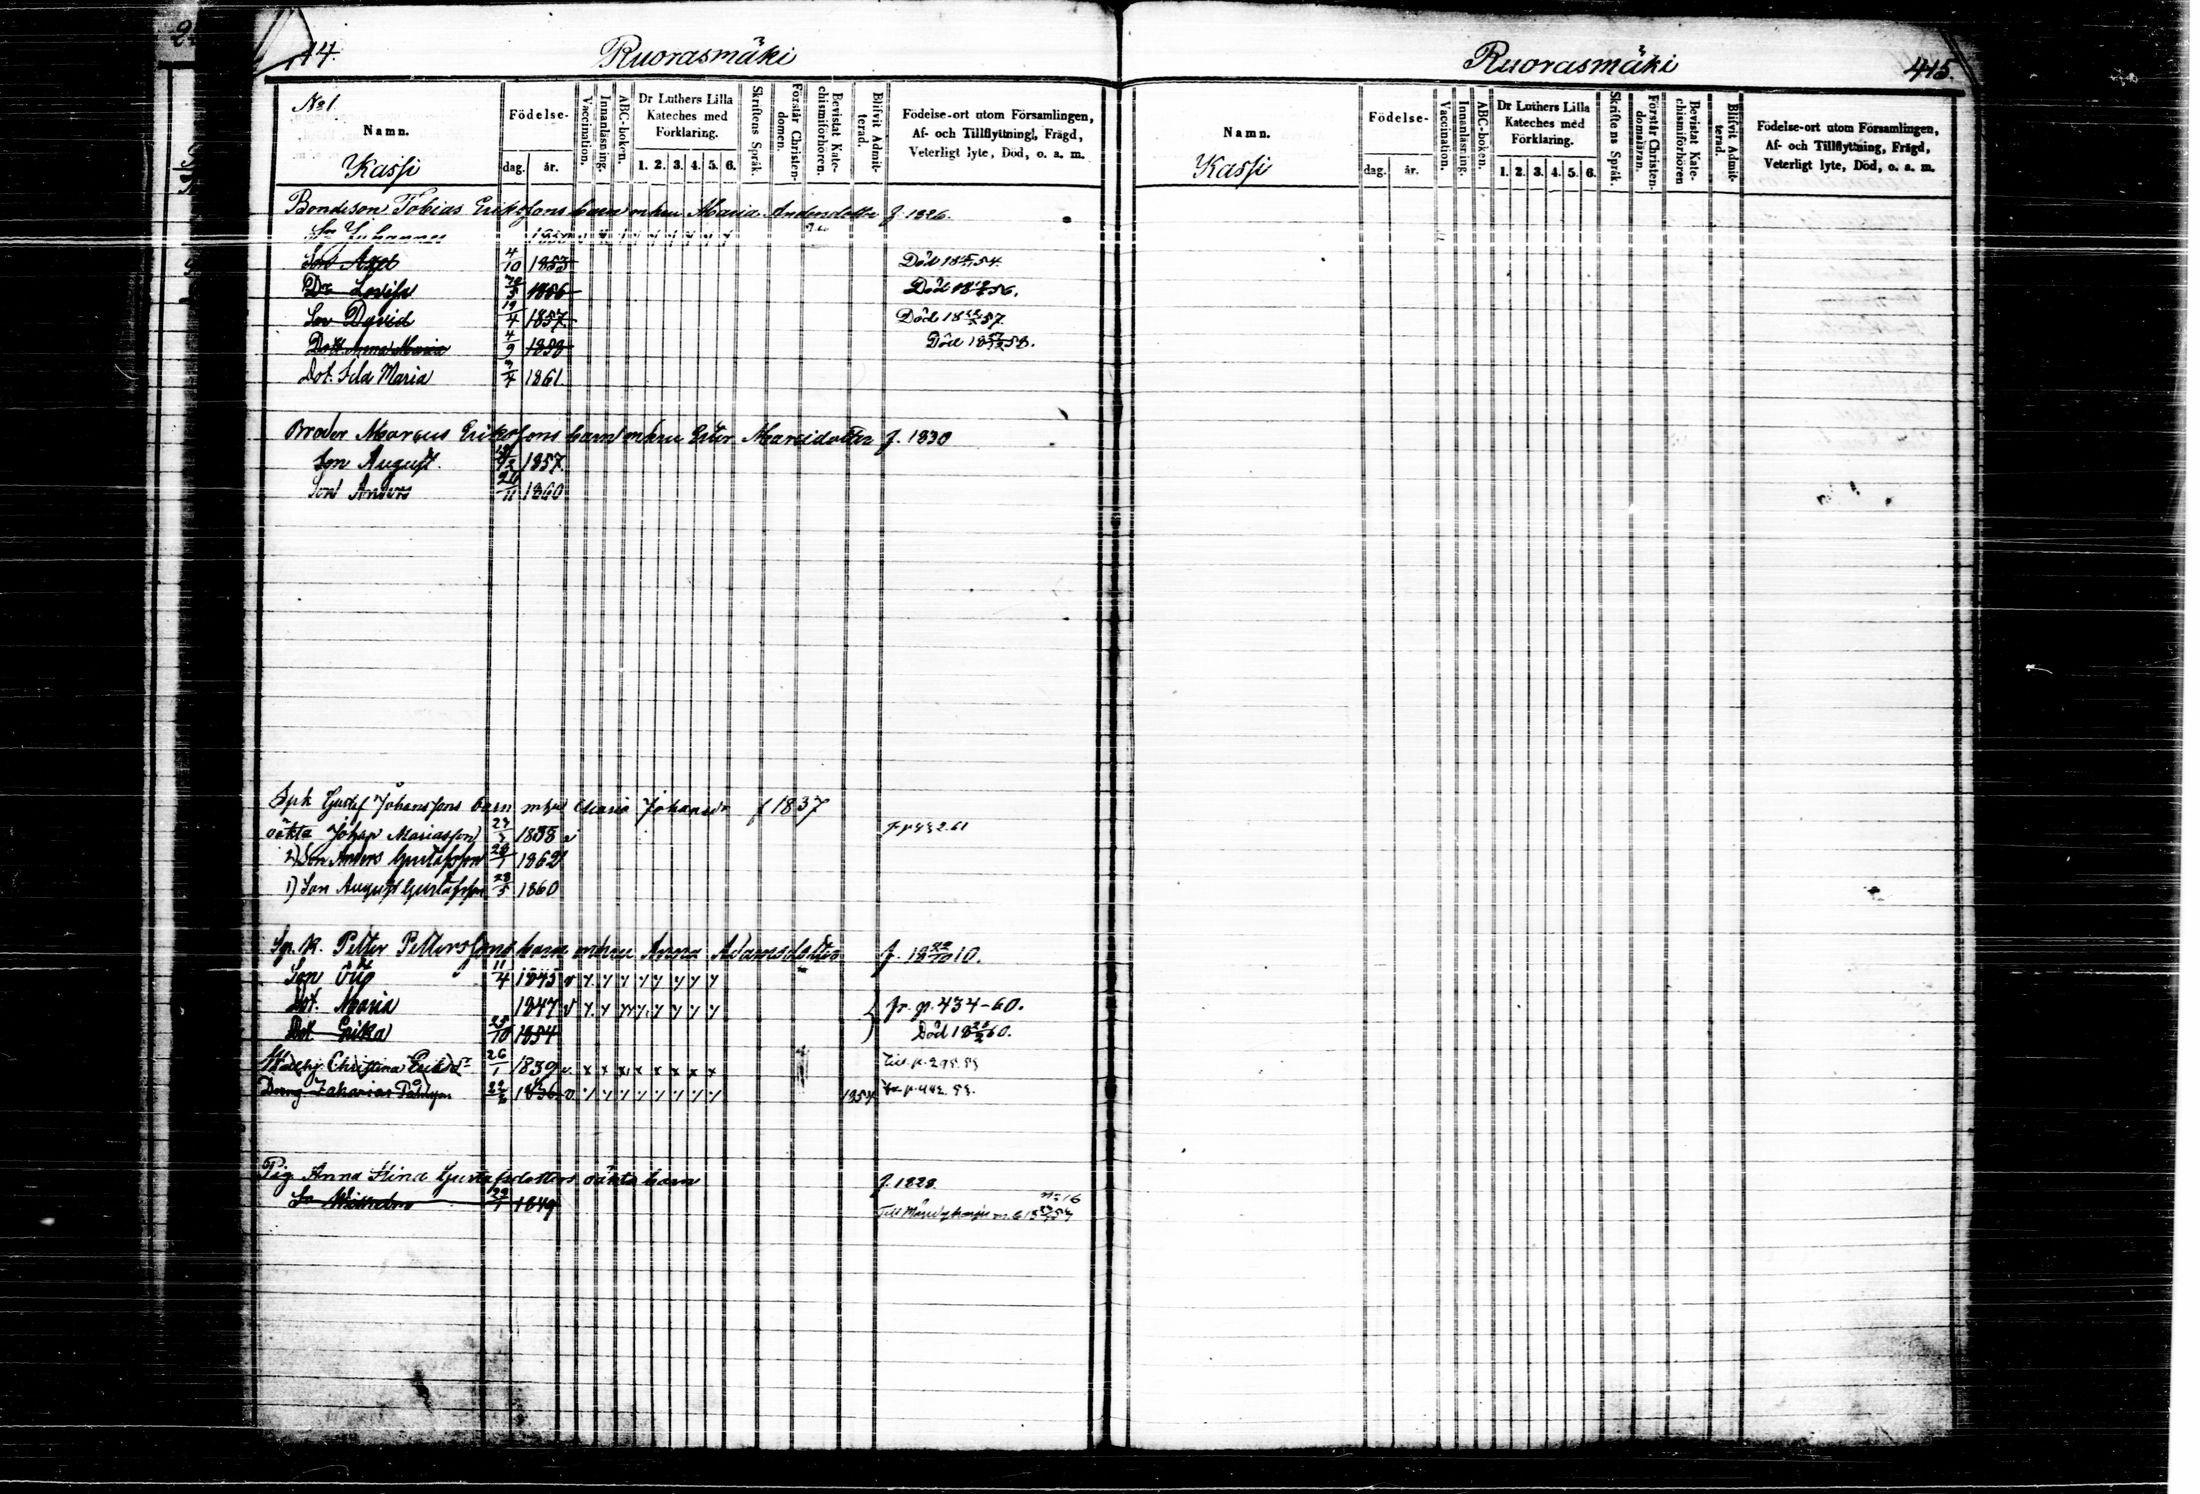 414.
Ruorasmäki
No 1.
Namn.
Kassi
Födelse-
dag. år.
Vaccination.
Innanläsning.
ABC-boken.
Dr Luthers Lilla Kateches med Förklaring.
1. 2. 3. 4. 5. 6.
Skriftens Språk.
Förstår Christendomen.
Bevistat Katechismiförhören.
Blifvit Admitterad.
Födelse-ort utom Församlingen,
Af- och Tillflyttningl, Frägd,
Veterligt lyte, Död, o. a. m.
Bondeson Tobias Eriksons barn m hu Maria Andersdotter f. 1826.
Son Johannes 1850 v
Son Axel 4/10 1853 Död 54.
Dr Lovisa 1856 Död 56.
Son David 19/4 1857 Död 57.
Dott Anna Maria 4/9 1858 Död 58.
Dot. Maria 7/4 1861.
Broder Marcus Eriksons barn m hu Ester Marcidotter f. 1830
Son August. 1857.
Son Anders 26/11 1860
Spk Gustaf Johanssons barn m hu Maria Johansd f 1837
oäkta Johan Mariasson 1858 v fr p 432.61
2) Son Anders Gustafsson 28/1 1862
1) Son August Gustafsson 28/5 1860
Sp. k. Petter Petterssons barn m hu Anna Adamsdotter f. 10.
Son 11/4 1845 v
Dot. Maria 1847 v fr. p. 434-60.
Dot Erika 25/10 1854 Död 60.
Christina Eriksd 26/1 1839 v x x x x x x x x Till p. 295.59
Dreng Zakarias 1836 v 1854 p. 442. 59.
Pig. Anna Stina Gustafsdotters oäkta barn f. 1828
Son 1849 Till
Ruorasmäki
415.
Namn.
Kassi
Födelse-
dag. år.
Vaccination.
Innanläsning.
ABC-boken.
Dr Luthers Lilla Kateches med Förklaring.
1. 2. 3. 4. 5. 6.
Skriftens Språk.
Förstår Christendomsläran.
Bevistat Katechismiförhören
Blifvit Admitterad.
Födelse-ort utom Församlingen,
Af- och Tillflyttning, Frägd,
Veterligt lyte, Död, o. a. m.